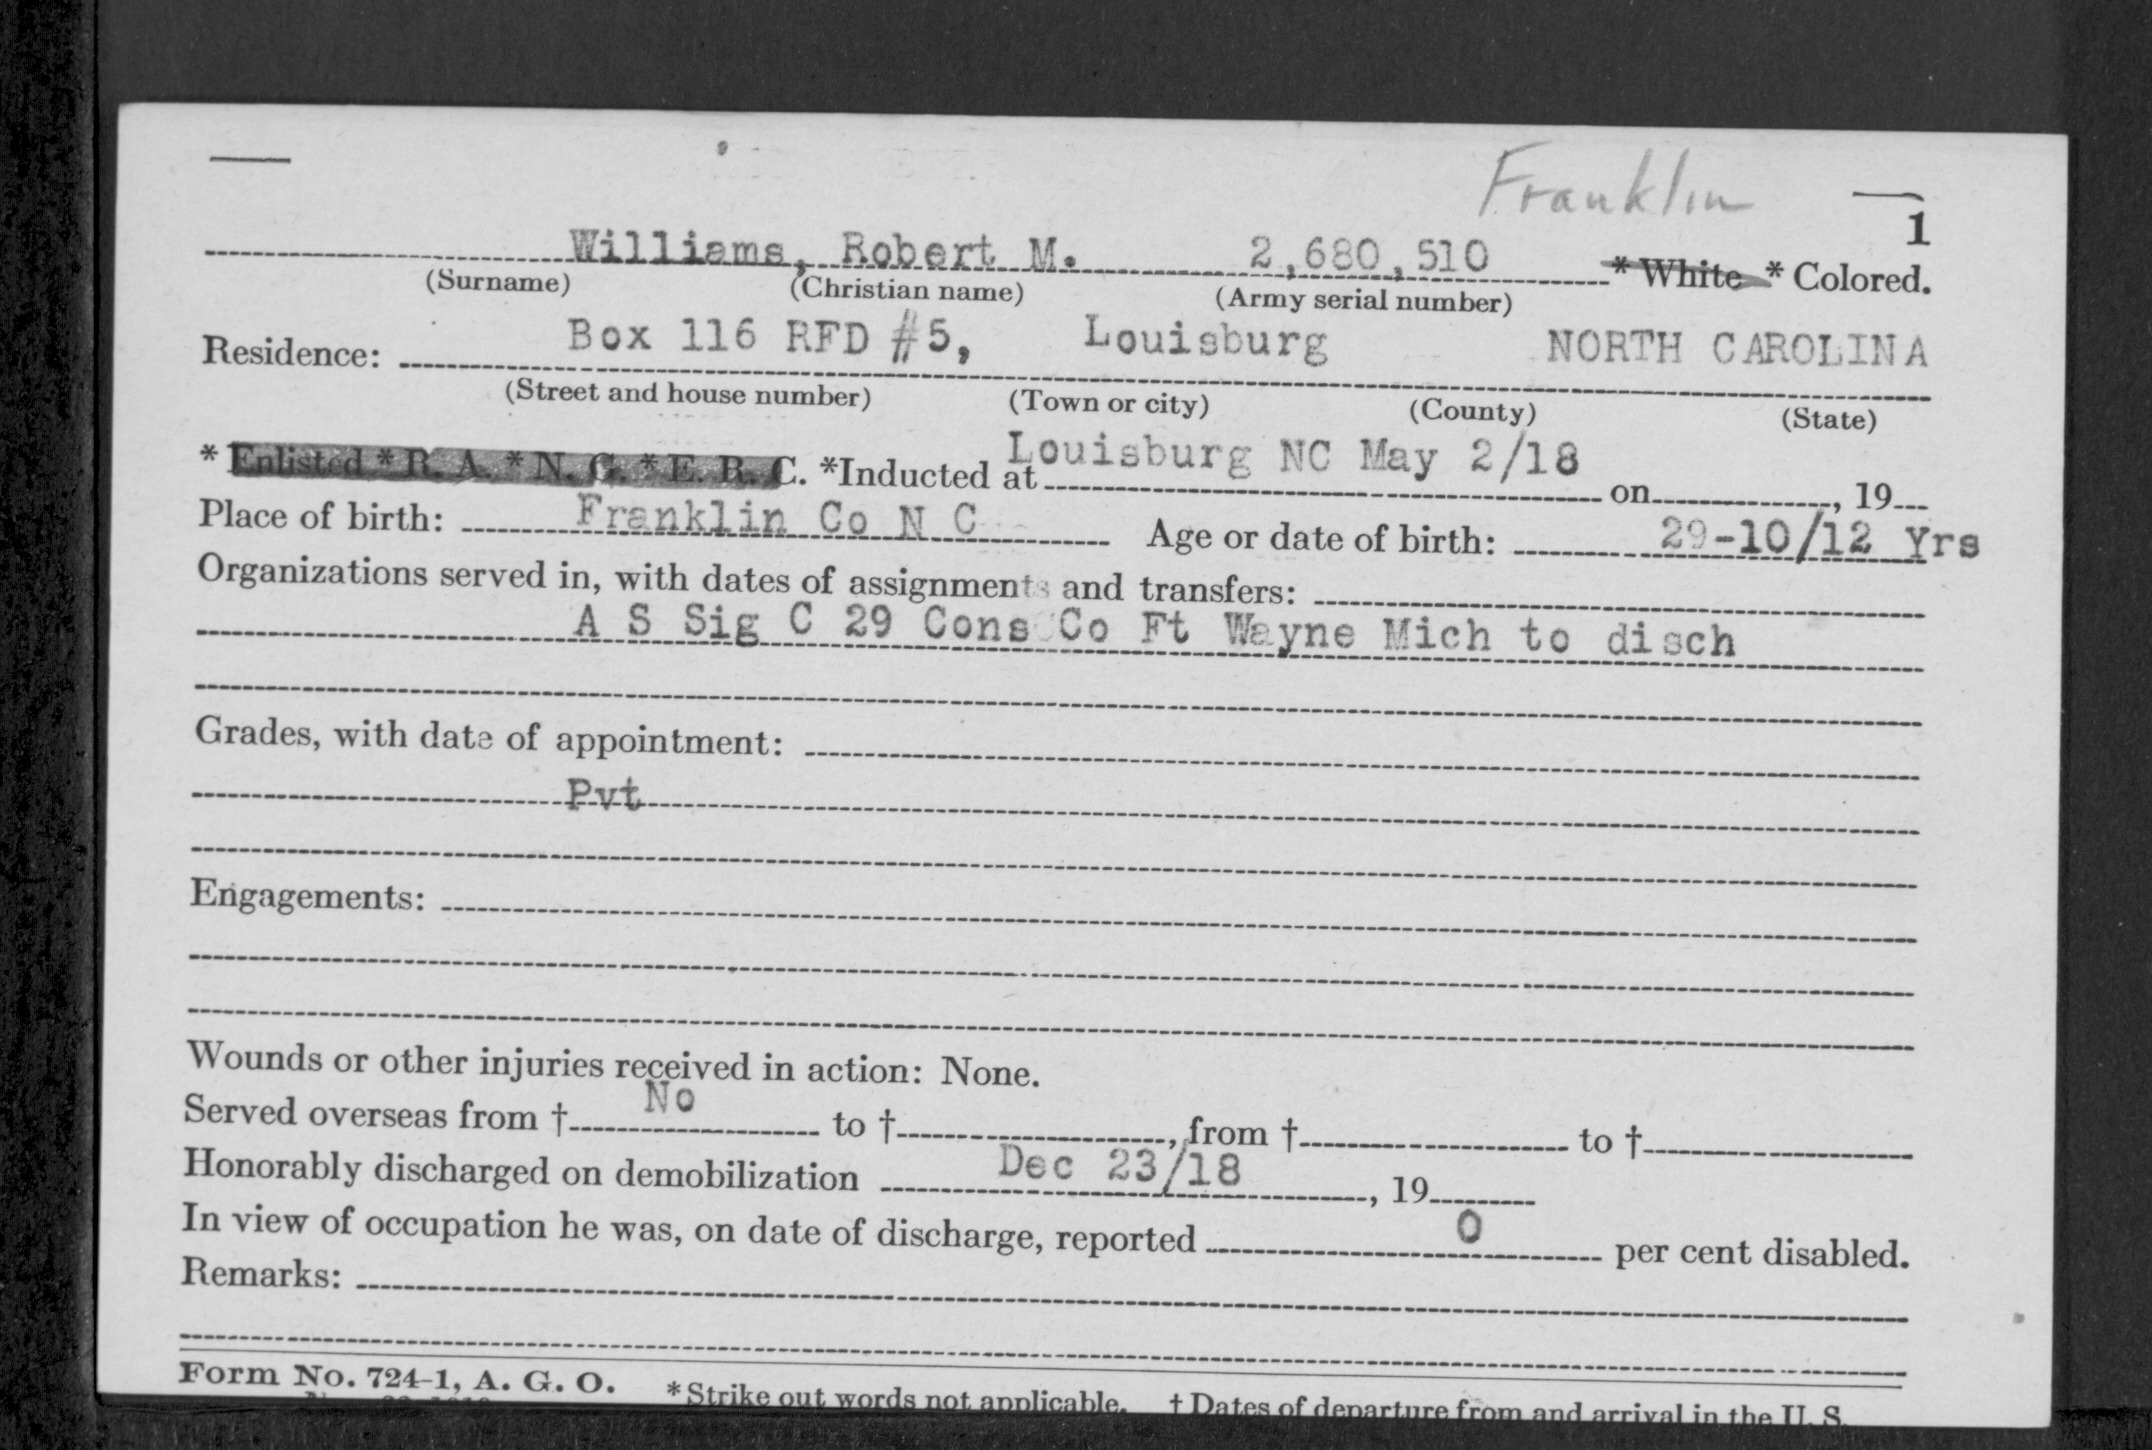 Franklin
1
Williams, Robert M. 2,680,510 * White * Colored.
(Surname) (Christian name) (Army serial number)
Residence: Box 116 RFD #5, Louisburg NORTH CAROLINA
(Street and house number) (Town or city) (County) (State)
* Enlisted * R. A. * N. G. * E. R. C. *Inducted at Louisburg NC May 2/18 on , 19
Place of birth: Franklin Co N C Age or date of birth: 29-10/12 Yrs
Organizations served in, with dates of assignments and transfers:
A S Sig C 29 Cons Co Ft Wayne Mich to disch
Grades, with date of appointment:
Pvt
Engagements:
Wounds or other injuries received in action: None.
Served overseas from † No to † , from † to †
Honorably discharged on demobilization Dec 23/18 , 19
In view of occupation he was, on date of discharge, reported 0 per cent disabled.
Remarks:
Form No. 724-1, A. G. O. * Strike out words not applicable. † Dates of departure from and arrival in the U. S.